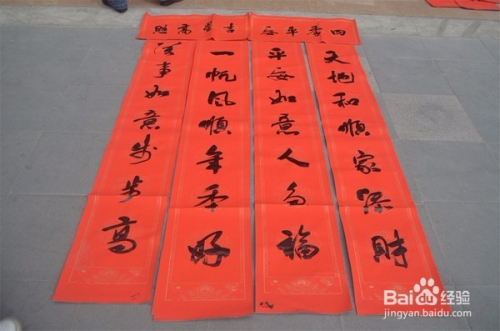 四季平安
吉星高照
天地和順家添財
平安如意人多福
一帆風順年年好
萬事如意步步高
Baidu经验
jingyan.baidu.com